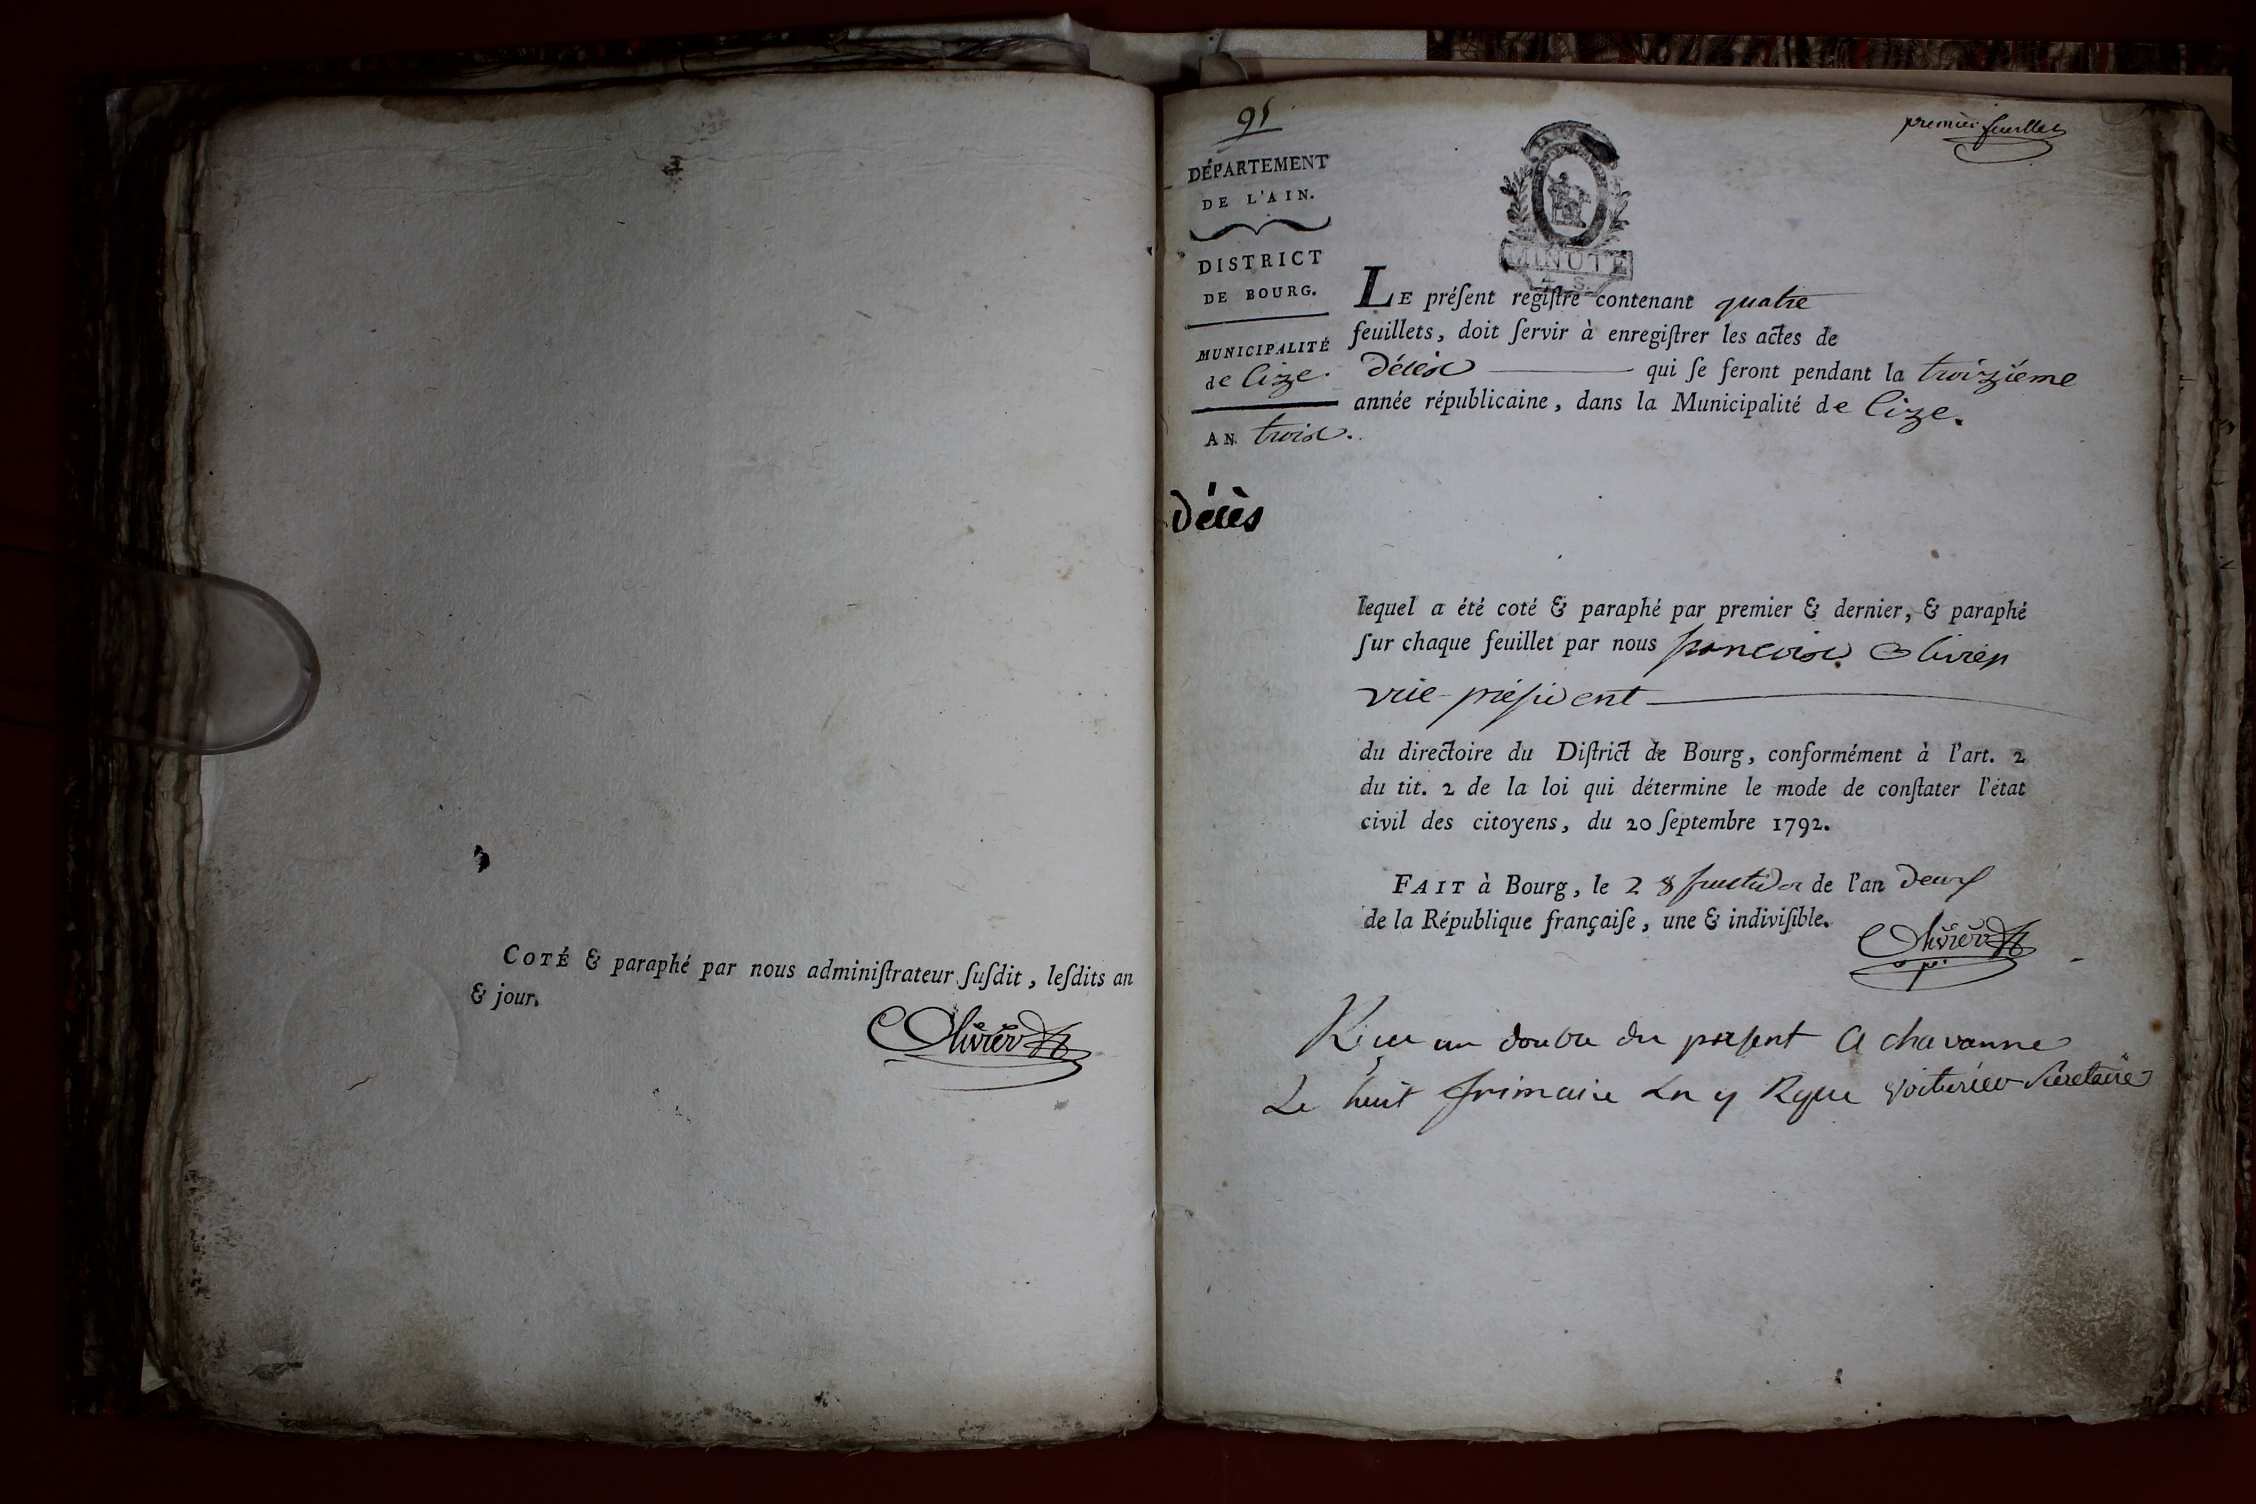 COTÉ & paraphé par nous adminiſtrateur ſuſdit, leſdits an
& jour.
Olivier
91
premier feuillet
DÉPARTEMENT
DE L'AIN.
DISTRICT
DE BOURG.
MUNICIPALITÉ
de Cize.
AN trois.
décès
MINUTE
LE préſent regiſtre contenant quatre
feuillets, doit ſervir à enregiſtrer les actes de
décès qui ſe feront pendant la troizième
année républicaine, dans la Municipalité de Cize.
lequel a été coté & paraphé par premier & dernier, & paraphé
ſur chaque feuillet par nous françois Olivier
vice-préſident
du directoire du Diſtrict de Bourg, conformément à l'art. 2
du tit. 2 de la loi qui détermine le mode de conſtater l'état
civil des citoyens, du 20 ſeptembre 1792.
FAIT à Bourg, le 28 fructidor de l'an deux
de la République françaiſe, une & indiviſible.
Olivier
v. p.
Reçu un double du présent a chavanne
Le huit frimaire voiturier Secretaire